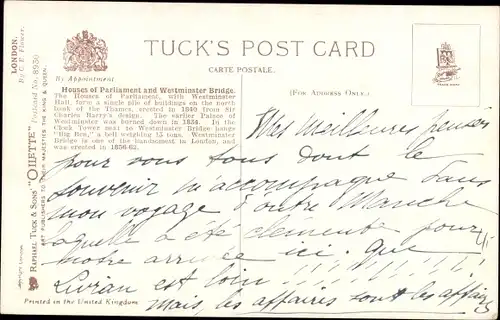 TUCK'S POST CARD
CARTE POSTALE.
By Appointment
(FOR ADDRESS ONLY.)
Houses of Parliament and Westminster Bridge.
The Houses of Parliament, with Westminster
Hall, form a single pile of buildings on the north
bank of the Thames, erected in 1840 from Sir
Charles Barry's design. The earlier Palace of
Westminster was burned down in 1834. In the
Clock Tower next to Westminster Bridge hangs
"Big Ben," a bell weighing 13 tons. Westminster
Bridge is one of the handsomest in London, and
was erected in 1856-62.
LONDON.
By C. E. Flower.
"OILETTE" Postcard No. 8950
RAPHAEL TUCK & SONS
ART PUBLISHERS TO THEIR MAJESTIES THE KING & QUEEN.
Mes meilleures pensées
pour vous tous dont le
souvenir m'accompagne dans
mon voyage d'outre Manche
laquelle a été clémente pour
notre arrivée ici que
est loin !!!!!!!
mais, les affaires sont les affaires
Printed in the United Kingdom